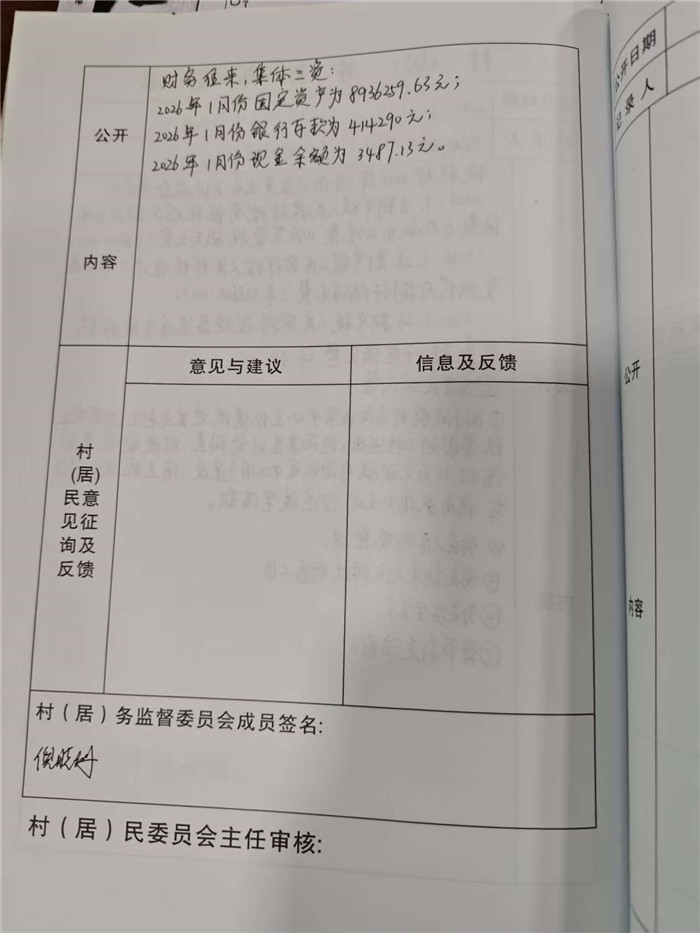 财务往来,集体三资:
2026年1月份固定资产为8936259.63元;
2026年1月份银行存款为414290元;
2026年1月份现金余额为3487.13元。
公开
内容
意见与建议
信息及反馈
村
(居)
民意
见征
询及
反馈
村(居)务监督委员会成员签名:
村(居)民委员会主任审核:
公开日期
记录人
公开
内容